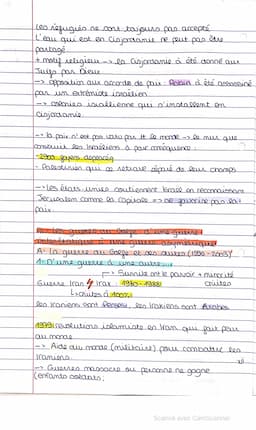 Les réfugiés ne sont toujours pas accepté
L'eau qui est en Cisjordanie ne peut pas être
partagé
+ motif religieux → la Cisjordanie a été donné aux
Juifs par Dieu
→ opposition aux accords de paix : Rabin a été assassiné
par un extrémiste israélien
→ colonies israélienne qui s'installent en
Cisjordanie
→ la paix n'est pas voulu par tt le monde → le mur que
construit les Israéliens a pour conséquence :
- 2500 foyers déplacés
- Palestiniens qui se retrouve séparé de leurs champs
→ Les états-unies soutiennent Israël en reconnaissant
Jerusalem comme la capitale => ne favorise pas la
paix
II - Les guerres du Golfe : d'une guerre
à une guerre asymétrique
A - La guerre du Golfe et ses suites (1990-2003)
1 - D'une guerre à une autre...
→ Sunnite ont le pouvoir + minorité
Guerre Iran Irak : 1980-1988 chiites
↳ chiites à
les Iraniens sont Perses, les Irakiens sont Arabes
1979 révolutions islamiste en Iran qui fait peur
au monde
→ Aide du monde (militaire) pour combattre les
Iraniens
→ Guerres massacre ou personne ne gagne
(enfants soldats,
Scanné avec CamScanner